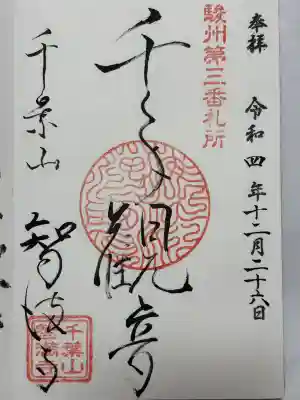 奉拝 令和四年十二月二十六日
駿州第三番札所
千手観音
千葉山
智満寺
千葉山
智満寺